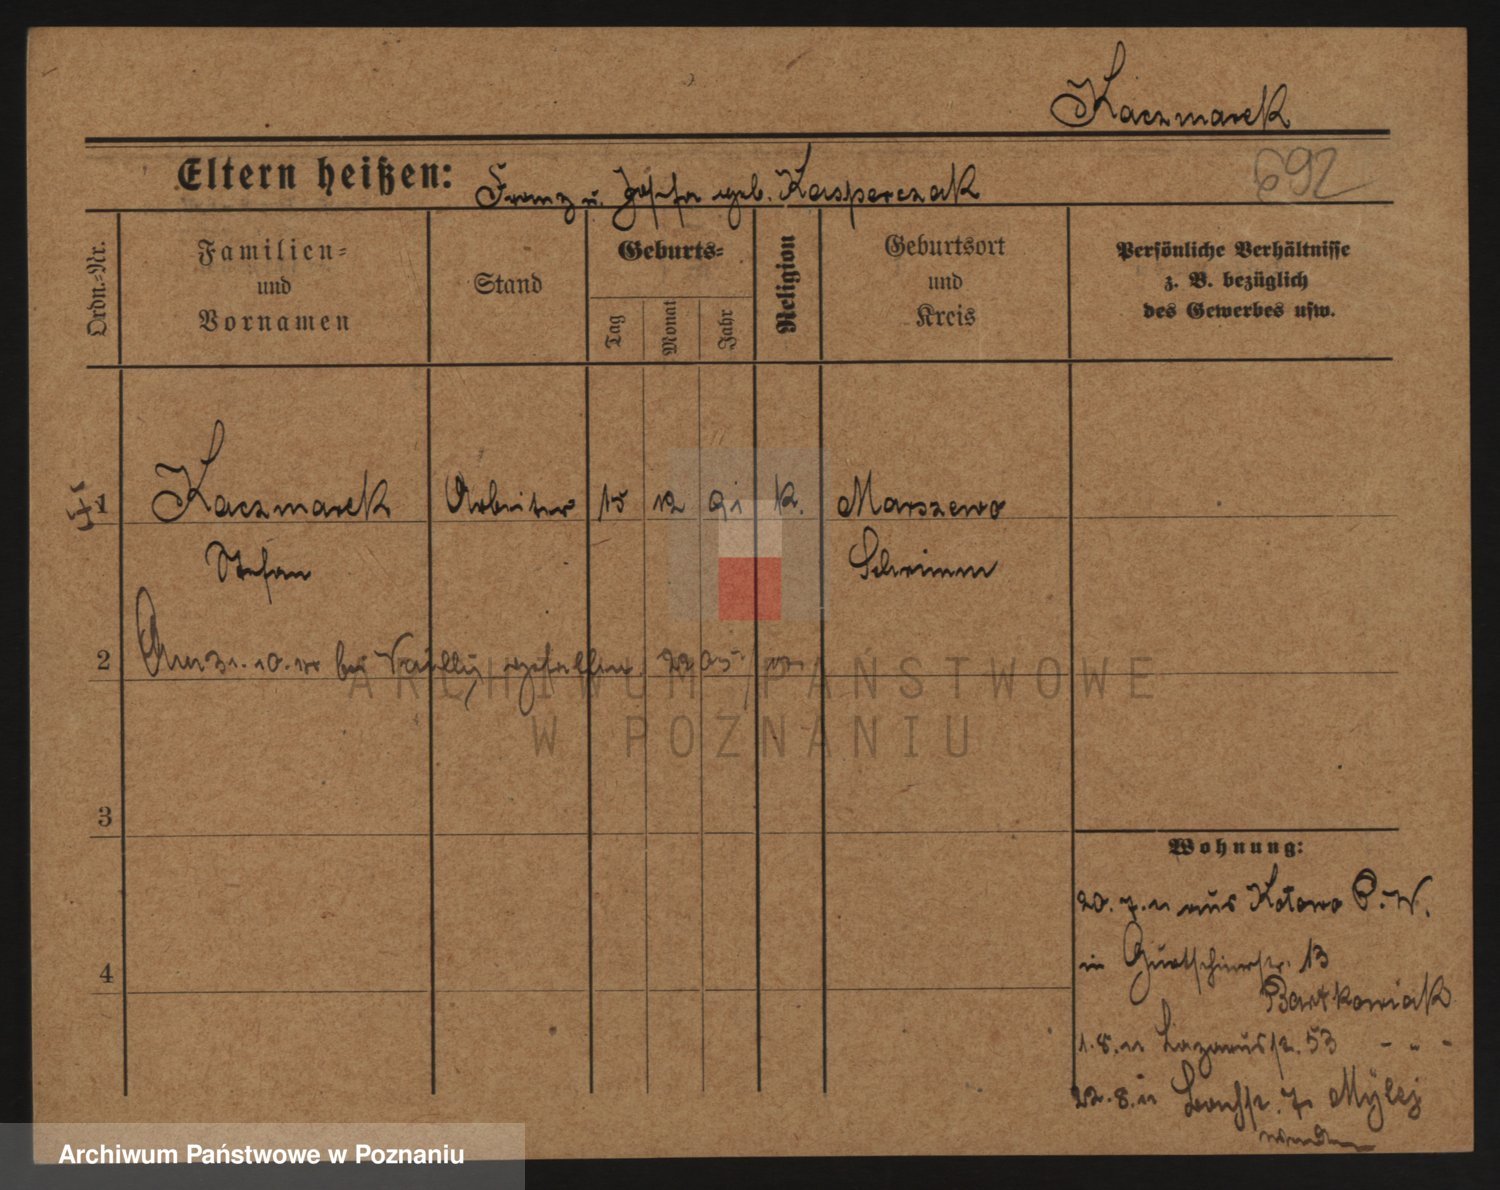 Kaczmarek
692
Eltern heißen: Franz u. Josefa geb. Kasperczak
Ordn.-Nr.
Familien-
und
Vornamen
Stand
Geburts-
Tag
Monat
Jahr
Religion
Geburtsort
und
Kreis
Persönliche Verhältnisse
z. B. bezüglich
des Gewerbes usw.
1 Kaczmarek Arbeiter 15 12 91 k. Marszewo
Stefan Schrimm
2 Am 31. 10. bei Vailly gefallen.
3
4
Wohnung:
20. 7. 11 aus Kotowo P. W.
in Gurtschinerstr. 13
Bartkowiak
1. 8. 11 Lazarusstr. 53 - - -
22. 8. 11 7
wenden
ARCHIWUM PAŃSTWOWE
W POZNANIU
Archiwum Państwowe w Poznaniu